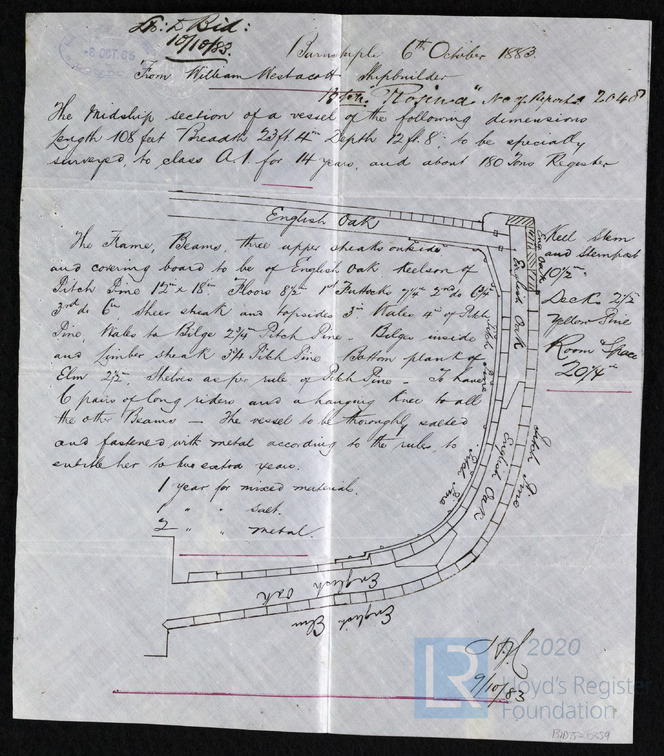 Bid:
10/10/83.
8 OCT
Barnstaple 6th October 1883.
From William Westacott Shipbuilder
"Rosina" No of Report 2048
The Midship section of a vessel of the following dimensions
length 108 feet Breadth 23 ft. 4in Depth 12 ft. 8; to be specially
surveyed, to class A.1. for 14 years, and about 180 Tons Register
English Oak
The Frame, Beams, three upper sheaks outside
and covering board to be of English Oak Keelson of
Pitch Pine 12in x 18in Floors 8½ 1st Futtocks 7¼ 2nd do 6¾
3rd do 6in Sheer sheak and topsides 3in Wales 4in of Pitch
Pine, Wales to Bilge 2¾ Pitch Pine - Bilges inside
and Limber sheak 3¼ Pitch Pine - Bottom plank of
Elm 2½. Shelves as per rule of Pitch Pine - To have
6 pairs of long riders and a hanging knee to all
the other Beams — The vessel to be thoroughly salted
and fastened with metal according to the rules, to
entitle her to two extra years.
1 year for mixed material.
1 " " salt.
2 " " metal.
Keel Stem
and Sternpost
10½in
Deck 2½
Yellow Pine
Room & Space
20¼in
Eng Oak
English Oak
Pitch Pine
Pitch Pine
English Oak
Pitch Pine
English Oak
English Elm
9/10/83
LR
© 2020
Lloyd's Register
Foundation